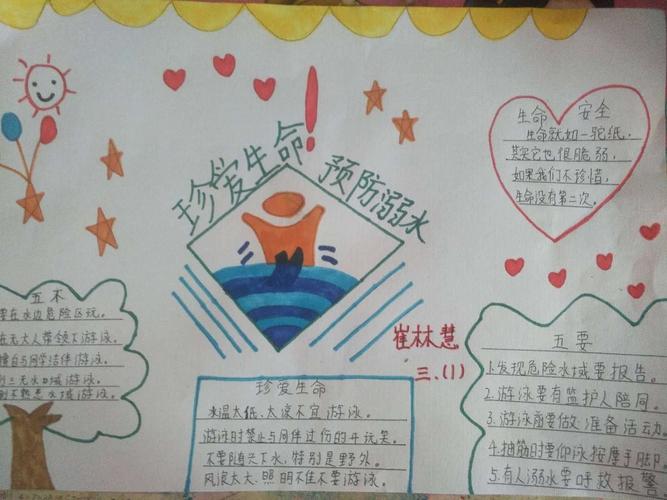 珍爱生命！
预防溺水
生命 安全
生命就如一驼纸，
其实它也很脆弱，
如果我们不珍惜，
生命没有第二次。
崔林慧
三.(1)
五不
要在水边危险区玩。
在无大人带领下游泳。
擅自与同学结伴游泳。
到三无水口域游泳。
到不熟悉水域游泳。
珍爱生命
水温太低、太凉不宜游泳。
游泳时禁止与同伴过份的开玩笑。
不要随兴下水，特别是野外。
风浪太大、照明不佳不要游泳。
五要
1.发现危险水域要报告。
2.游泳要有监护人陪同。
3.游泳前要做准备活动。
4.抽筋时要仰泳按摩手脚
5.有人溺水要呼救报警